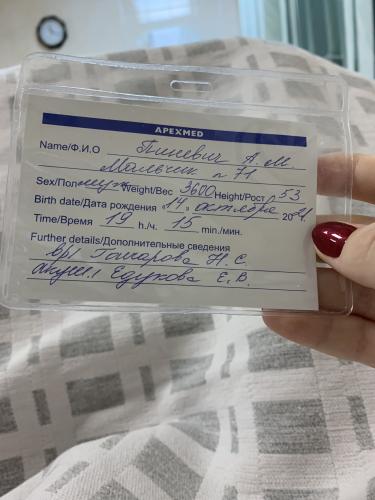 APEXMED
Name/Ф.И.О Пиневич А.М
Мальчик п 71
Sex/Пол муж Weight/Вес 3600 Height/Рост 53
Birth date/Дата рождения "14" октября 2021
Time/Время 19 h./ч. 15 min./мин.
Further details/Дополнительные сведения
вр. Гончарова Н.С.
акуш. Едунова Е.В.